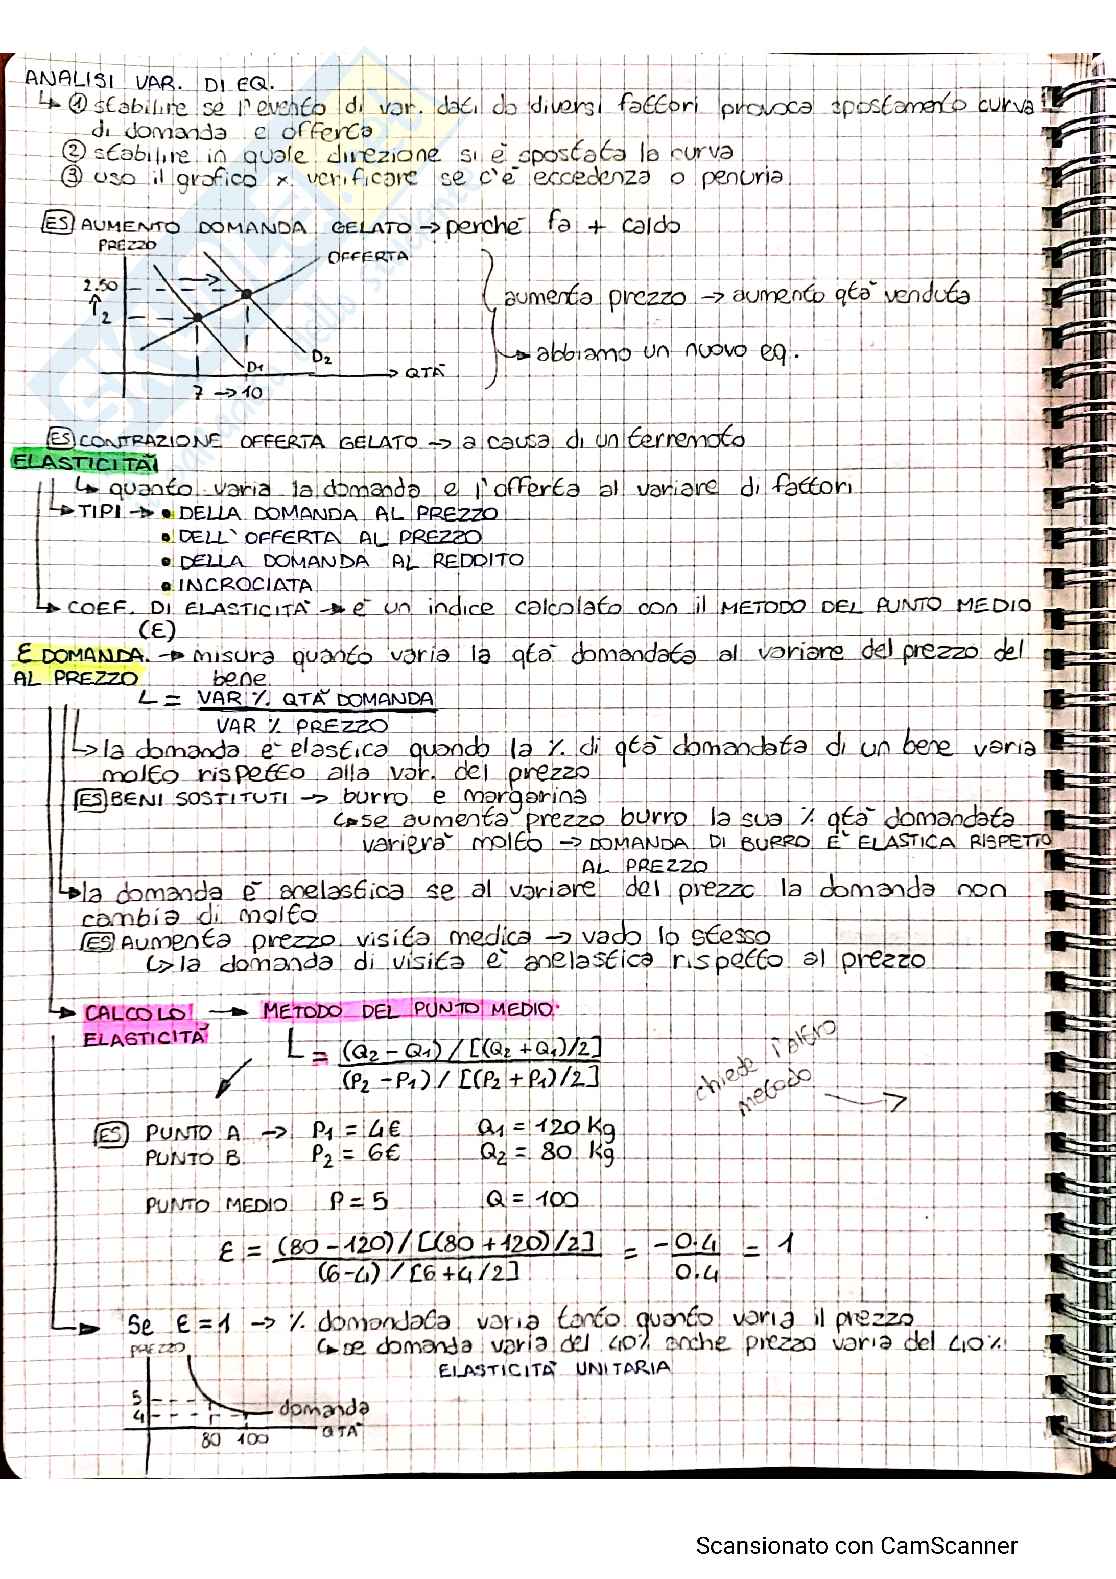 ANALISI VAR. DI EQ.
↳ ① stabilire se l'evento di var. dati da diversi fattori provoca spostamento curva
di domanda e offerta
② stabilire in quale direzione si è spostata la curva
③ uso il grafico x verificare se c'è eccedenza o penuria
ES AUMENTO DOMANDA GELATO → perchè fa + caldo
PREZZO
OFFERTA
2.50
aumenta prezzo → aumento qtà venduta
↑ 2
abbiamo un nuovo eq.
D1 D2
→ QTÀ
7 → 10
ES CONTRAZIONE OFFERTA GELATO → a causa di un terremoto
ELASTICITÀ
↳ quanto varia la domanda e l'offerta al variare di fattori
↳ TIPI → • DELLA DOMANDA AL PREZZO
• DELL'OFFERTA AL PREZZO
• DELLA DOMANDA AL REDDITO
• INCROCIATA
↳ COEF. DI ELASTICITÀ → è un indice calcolato con il METODO DEL PUNTO MEDIO
(E)
E DOMANDA → misura quanto varia la qtà domandata al variare del prezzo del
AL PREZZO bene
L = VAR % QTÀ DOMANDA
VAR % PREZZO
↳ la domanda è elastica quando la % di qtà domandata di un bene varia
molto rispetto alla var. del prezzo
ES BENI SOSTITUTI → burro e margarina
↳ se aumenta prezzo burro la sua % qtà domandata
varierà molto → DOMANDA DI BURRO E' ELASTICA RISPETTO
AL PREZZO
↳ la domanda è anelastica se al variare del prezzo la domanda non
cambia di molto
ES Aumenta prezzo visita medica → vado lo stesso
↳ la domanda di visita è anelastica rispetto al prezzo
↳ CALCOLO → METODO DEL PUNTO MEDIO
ELASTICITÀ
L = (Q2 - Q1) / [(Q2 + Q1)/2]
(P2 - P1) / [(P2 + P1)/2]
chiede l'altro
metodo →
ES PUNTO A → P1 = 4€ Q1 = 120 Kg
PUNTO B P2 = 6€ Q2 = 80 kg
PUNTO MEDIO P = 5 Q = 100
E = (80 - 120) / [(80 + 120)/2] = -0.4 = 1
(6-4) / [6+4/2] 0.4
↳ Se E = 1 → % domandata varia tanto quanto varia il prezzo
↳ se domanda varia del 40% anche prezzo varia del 40%
PREZZO
ELASTICITÀ UNITARIA
5
4
domanda
QTÀ
80 100
Scansionato con CamScanner